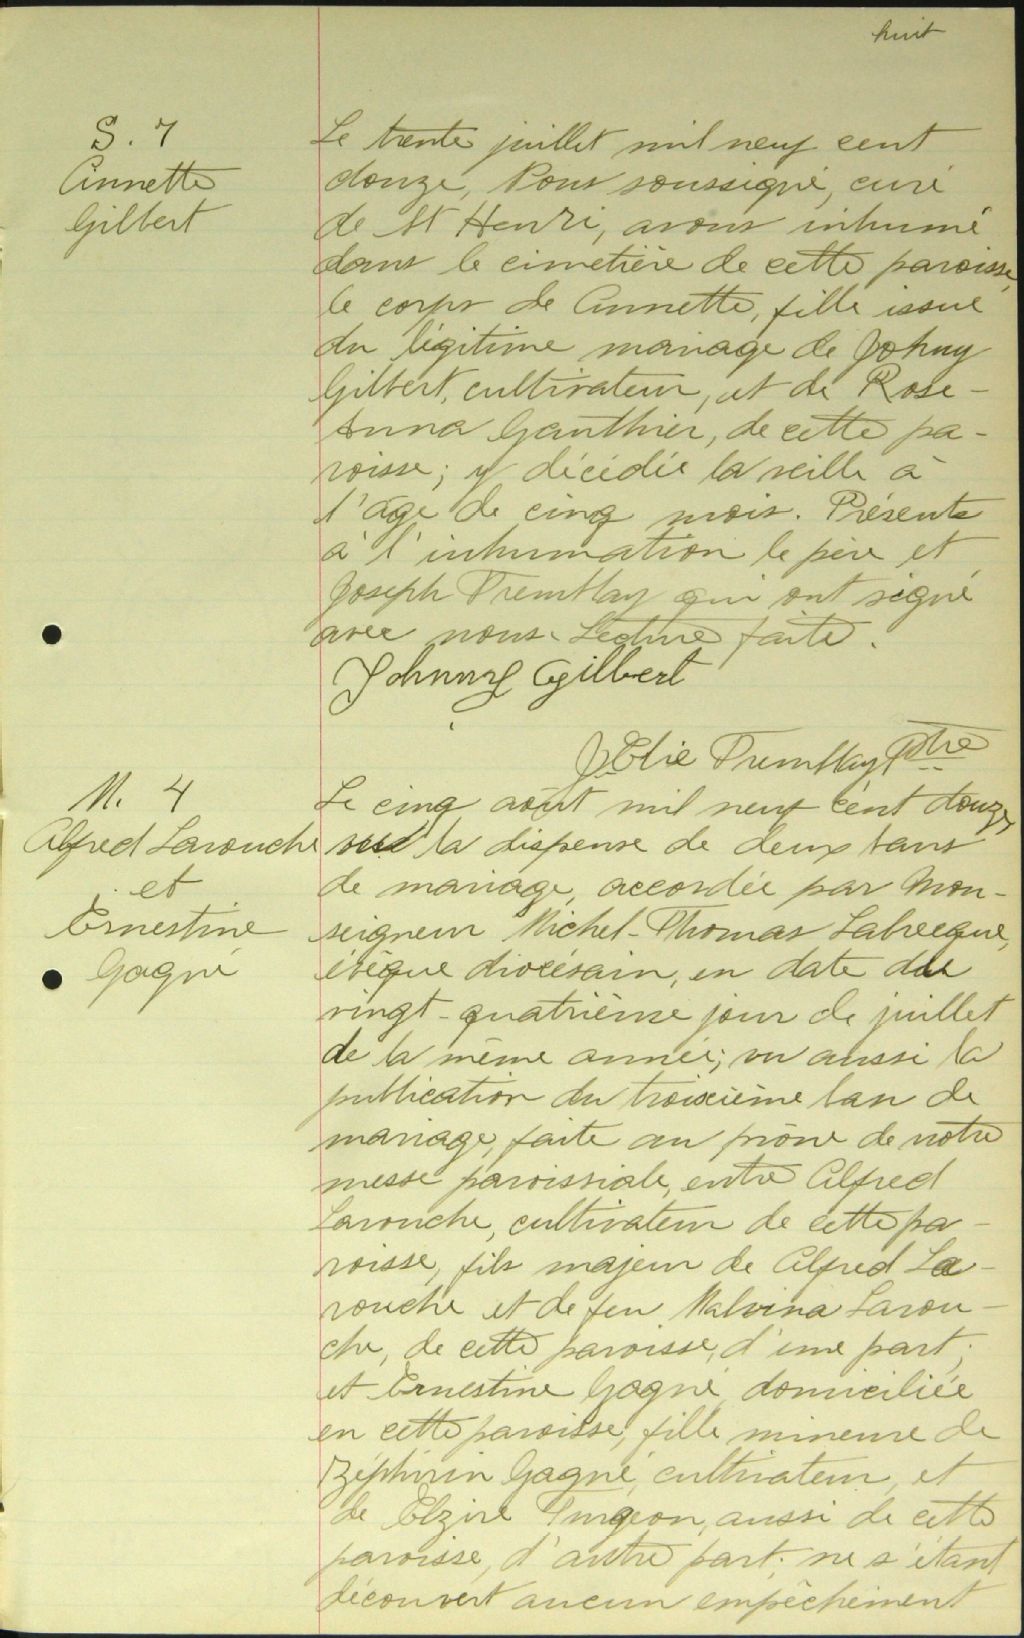 huit
S. 7
Annette
Gilbert
Le trente juillet mil neuf cent
douze, Nous soussigné, curé
de St Henri, avons inhumé
dans le cimetière de cette paroisse,
le corps de Annette, fille issue
du légitime mariage de Johny
Gilbert, cultivateur, et de Rose-
Anna Gauthier, de cette pa-
roisse; y décédée la veille à
l'âge de cinq mois. Présents
à l'inhumation le père et
Joseph Tremblay qui ont signé
avec nous. Lecture faite.
Johnny Gilbert
J. Elie Tremblay Ptre
M. 4
Alfred Larouche
et
Ernestine
Gagné
Le cinq août mil neuf cent douze,
vu la dispense de deux bans
de mariage, accordée par Mon-
seigneur Michel-Thomas Labrecque,
évêque diocésain, en date du
vingt-quatrième jour de juillet
de la même année; vu aussi la
publication du troisième ban de
mariage, faite au prône de notre
messe paroissiale, entre Alfred
Larouche, cultivateur de cette pa-
roisse, fils majeur de Alfred La-
rouche et de feu Malvina Larou-
che, de cette paroisse, d'une part;
et Ernestine Gagné, domiciliée
en cette paroisse, fille mineure de
Zéphirin Gagné, cultivateur, et
de Elzire Turgeon, aussi de cette
paroisse, d'autre part; ne s'étant
découvert aucun empêchement